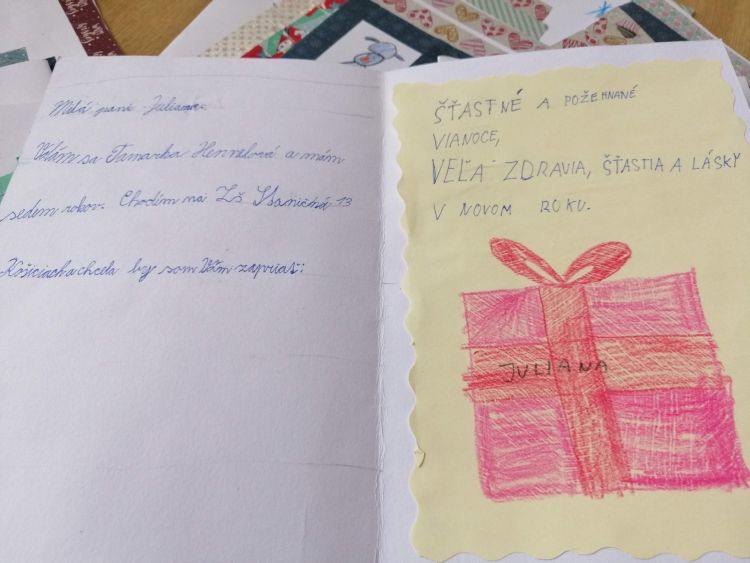 Milá pani Juliana
Volám sa Tamarka Hennelová a mám
sedem rokov. Chodím na ZŠ Staničná 13
Košiciach a chcela by som Vám zapriať:
ŠŤASTNÉ A POŽEHNANÉ
VIANOCE,
VEĽA ZDRAVIA, ŠŤASTIA A LÁSKY
V NOVOM ROKU.
JULIANA